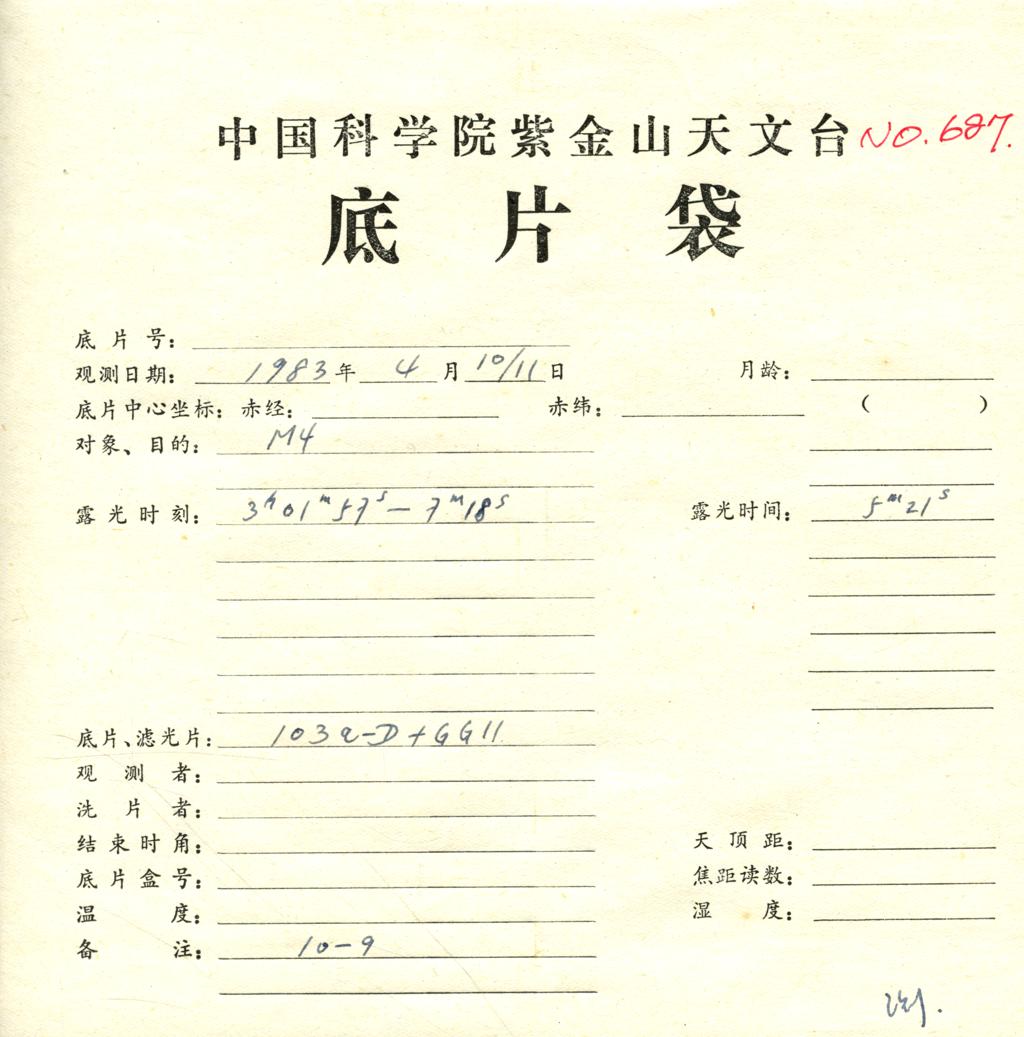 中国科学院紫金山天文台 NO.687.
底片袋
底片号：
观测日期： 1983年 4月 10/11日 月龄：
底片中心坐标：赤经： 赤纬： （ ）
对象、目的： M4
露光时刻： 3h01m57s — 7m18s 露光时间： 5m21s
底片、滤光片： 103a-D+GG11
观测者：
洗片者：
结束时角： 天顶距：
底片盒号： 焦距读数：
温度： 湿度：
备注： 10-9